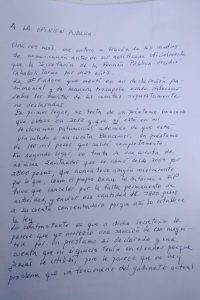 A LA OPINION PUBLICA
Una vez más, me entero a través de los medios
de comunicación antes de ser notificado oficialmente
que la Secretaría de la Función Pública decidió
inhabilitarme por diez años.
La SFP aduce que mentí en mi declaración pa-
trimonial y de manera tramposa evade informar
sobre los montos de las cuentas supuestamente
no declaradas.
En primer lugar, se trata de un préstamo bancario
que obtuve en 2015 y que sí está en mi
declaración patrimonial además de que está
vinculado a mi cuenta Bancomer. Un préstamo
de 100 mil pesos que saldé completamente.
En segundo lugar, se trata de una cuenta de
nómina Santander que se abrió desde 2002 por
2000 pesos, que nunca tuvo ningún movimiento
por lo que, como el propio banco le informó a SFP
tuvo que cancelar por la falta permanente de
actividad, y enviar esa cantidad de pesos
a su cuenta concentradora porque así lo establece
la ley.
Lo contrastante es que a dicha secretaría le
parece que yo merezco una sanción de esa magni-
tud por un préstamo sí declarado y una
cuenta que ni siquiera tenía en el radar porque
jamás la utilicé, pero le parece que no hay
problema que un funcionario del gabinete actual